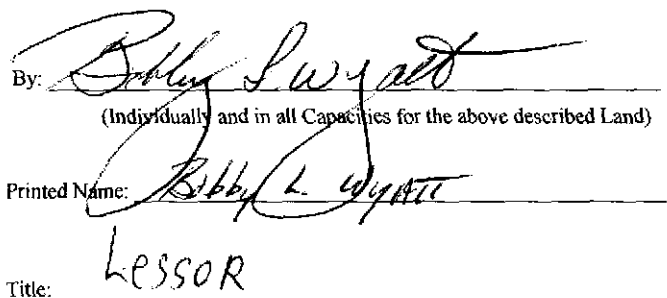 By: Bobby L. Wyatt
(Individually and in all Capacities for the above described Land)
Printed Name: Bobby L. Wyatt
Title: Lessor